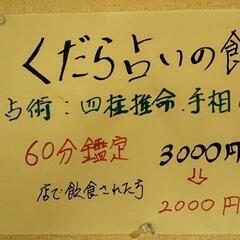 くだら占いの館
占術：四柱推命.手相
60分鑑定 3000円
店で飲食された方 2000円